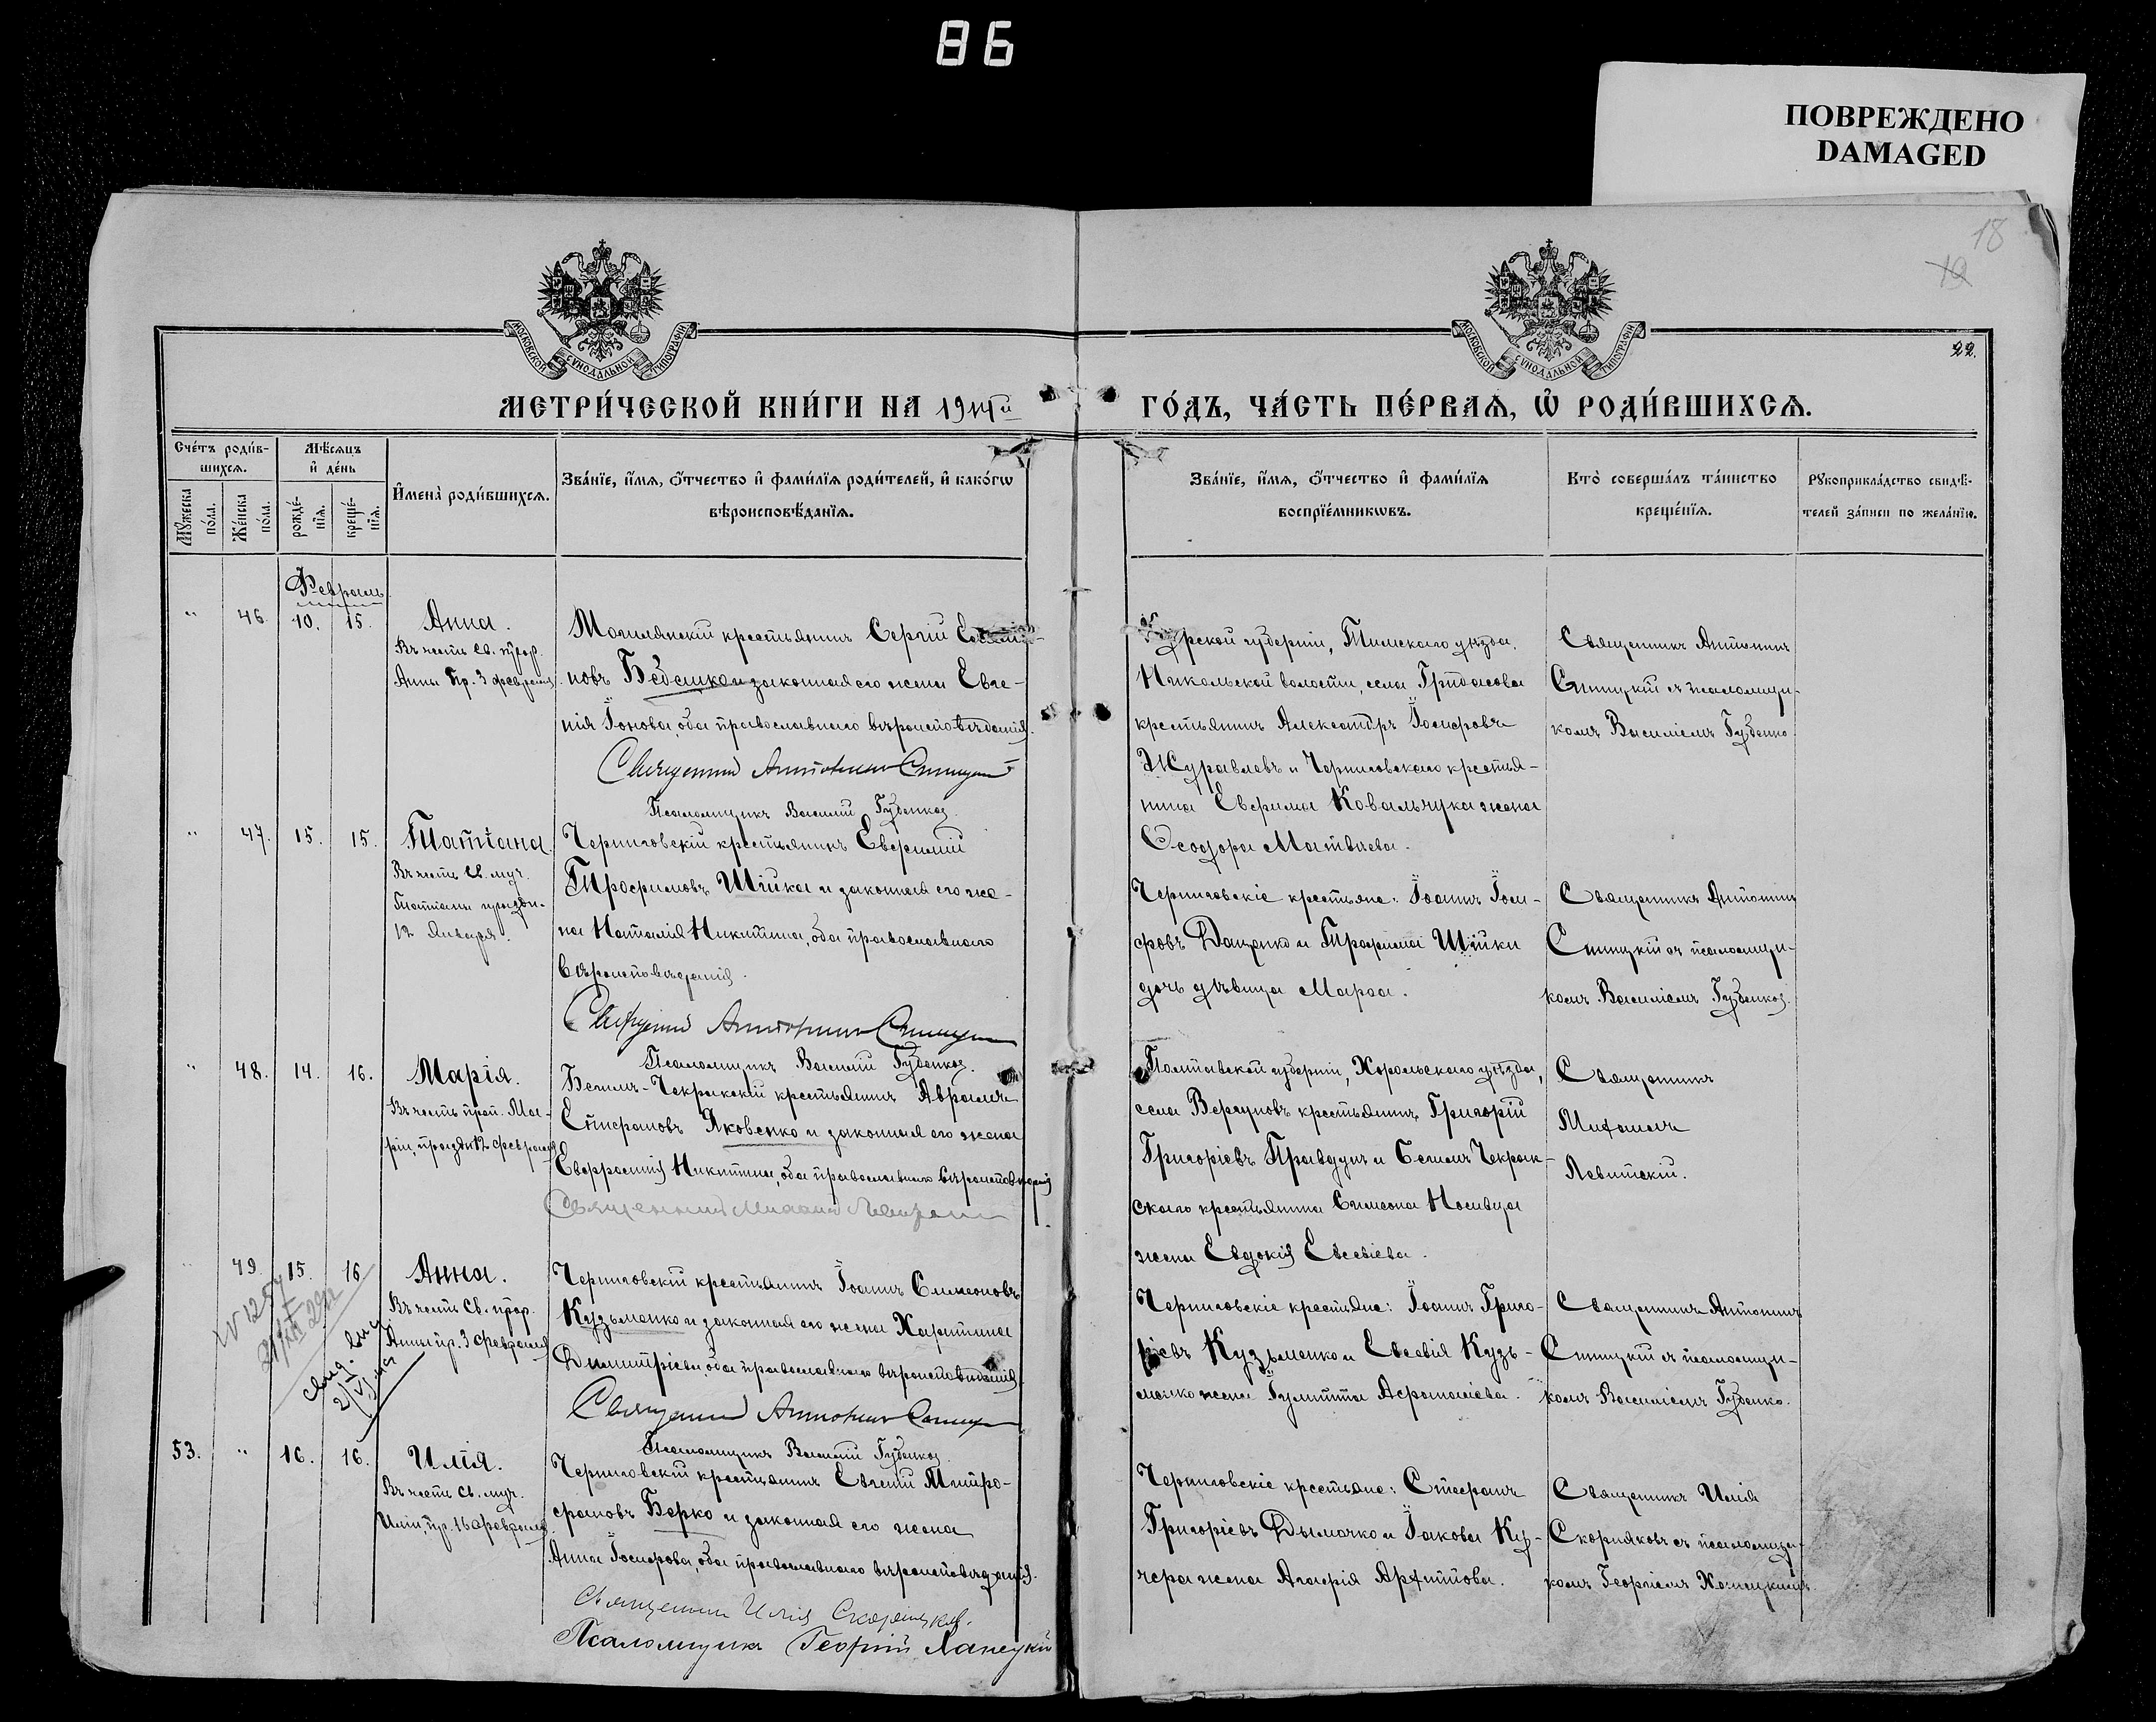 86
ПОВРЕЖДЕНО
DAMAGED
18
19
22.
МОСКОВСКОЙ СУНОДАЛЬНОЙ ТИПОГРАФІИ
МОСКОВСКОЙ СУНОДАЛЬНОЙ ТИПОГРАФІИ
МЕТРИ́ЧЕСКОЙ КНИ́ГИ НА 1914й ГО́ДЪ, ЧА́СТЬ ПЕ́РВАѦ, Ѽ РОДИ́ВШИХСѦ.
Сче́тъ роди́в-
шихсѧ.
Мѣ́сѧцъ
и҆ де́нь
Мꙋ́жеска по́ла.
Же́нска по́ла.
рожде́-
нїѧ.
креще́-
нїѧ.
И҆мена̀ роди́вшихсѧ.
Зва́нїе, и҆́мѧ, ѻ҆́тчество и҆ фами́лїѧ роди́телей, и҆ како́гѡ
вѣроисповѣ́данїѧ.
Зва́нїе, и҆́мѧ, ѻ҆́тчество и҆ фами́лїѧ
воспрїе́мникѡвъ.
Кто̀ соверша́лъ та́инство
креще́нїѧ.
Рꙋкоприкла́дство свидѣ́-
телей за́писи по жела́нїю.
Февраль
" 46. 10. 15. Анна.
Въ честь св. прор.
Анны пр. 3 февраля.
Могилянскій крестьянинъ Сергій
новъ и законная его жена Евге-
нія Іонова, оба православнаго вѣроисповѣданія.
Священникъ Антонинъ Синицкій
Псаломщикъ Василій Губенко.
Курской губерніи, Тимскаго уѣзда,
Никольской волости, села Гридасова
крестьянинъ Александръ Іосифовъ
Журавлевъ и Черниговскаго крестья-
нина Ефима Ковальчука жена
Ѳеодора Матвѣева.
Священникъ Антонинъ
Синицкій съ псаломщи-
комъ Василіемъ Губенко.
" 47. 15. 15. Татіана.
Въ честь св. муч.
Татіаны праздн.
12 Января.
Черниговскій крестьянинъ Евфимій
Трофимовъ Шійка и законная его же-
на Наталія Никитина, оба православнаго
вѣроисповѣданія.
Священникъ Антонинъ Синицкій
Псаломщикъ Василій Губенко.
Черниговскіе крестьяне: Іоаннъ Іоси-
фовъ Даценко и Трофима Шійки
дочь дѣвица Марѳа.
Священникъ Антонинъ
Синицкій съ псаломщи-
комъ Василіемъ Губенко.
" 48. 14. 16. Марія.
Въ честь преп. Ма-
ріи, праздн. 12 февраля
Бегимъ-Чокракскій крестьянинъ Авраамъ
Стефановъ Яковенко и законная его жена
Евфросинія Никитина, оба православнаго вѣроисповѣданія
Священникъ Михаилъ Левитскій
Полтавской губерніи, Хорольскаго уѣзда,
села Вергуновъ крестьянинъ Григорій
Григоріевъ Правдунъ и Бегимъ Чокрак-
скаго крестьянина Симеона Носивца
жена Евдокія Евсевіева.
Священникъ
Михаилъ
Левитскій.
49. 15. 16. Анна.
Въ честь св. прор.
Анны пр. 3 февраля
Черниговскій крестьянинъ Іоаннъ Симеоновъ
Кузьменко и законная его жена Харитина
Димитріева, оба православнаго вѣроисповѣданія.
Священникъ Антонинъ Синицкій
Псаломщикъ Василій Губенко.
Черниговскіе крестьяне: Іоаннъ Григо-
ріевъ Кузьменко и Евсевія Кузь-
менко жена Іулитта Аѳанасіева.
Священникъ Антонинъ
Синицкій съ псаломщи-
комъ Василіемъ Губенко.
53. " 16. 16. Илія.
Въ честь св. муч.
Иліи, пр. 16 февраля.
Черниговскій крестьянинъ Евгеній Митро-
фановъ Берко и законная его жена
Анна Іосифова, оба православнаго вѣроисповѣданія.
Священникъ Илія Скорняковъ.
Псаломщикъ Георгій Ханецкій
Черниговскіе крестьяне: Стефанъ
Григоріевъ Дымочко и Іакова Ку-
чера жена Агафія Архиппова.
Священникъ Илія
Скорняковъ съ псаломщи-
комъ Георгіемъ Ханецкимъ.